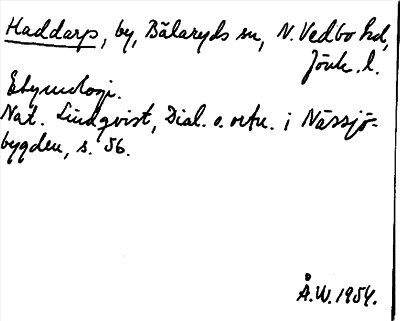 Haddarp, by, Bälaryds sn, N. Vedbo hd,
Jönk. l.
Etymologi.
Nat. Lindqvist, Dial. o. ortn. i Nässjö-
bygden, s. 56.
Å.W. 1954.